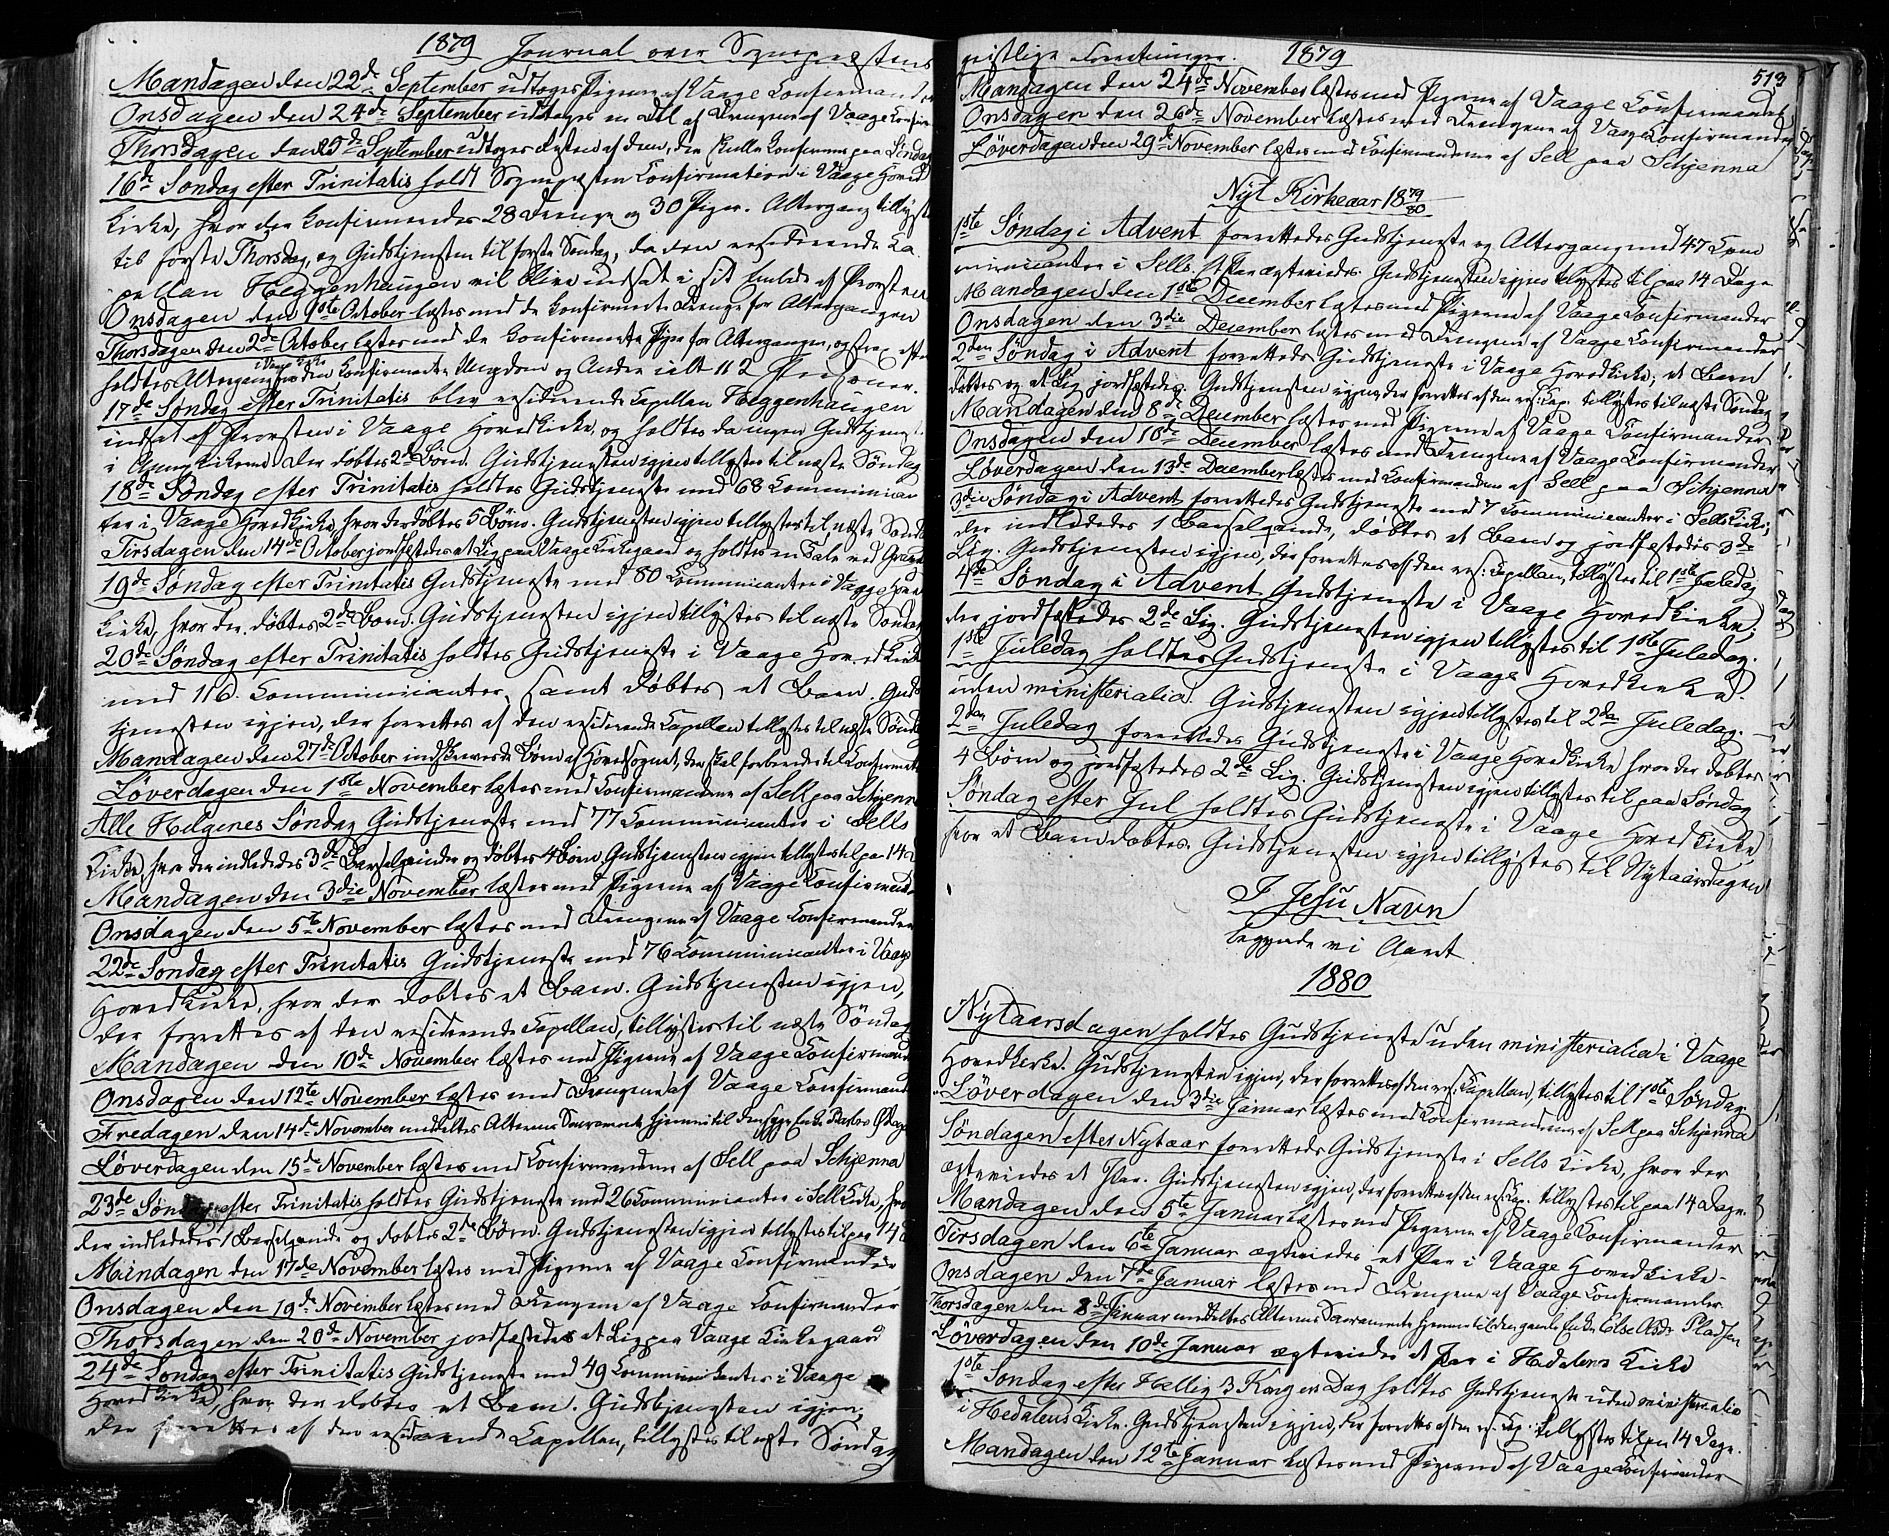 1879 Journal over Sognepræstens
Mandagen den 22de September udtoges Pigerne af Vaage Confirmander
Onsdagen den 24de September udtoges en Del af Drengene af Vaage Confir
Thorsdagen den 25de September udtoges Resten af dem, der skulle Confirmeres paa Søndag
16de Søndag efter Trinitatis holdt Sognepræsten Confirmation i Vaage Hoved
Kirke, hvor der Confirmeredes 28 Drenge og 30 Piger. Altergang tillyst
til første Thorsdag, og Gudstjenesten til første Søndag, da den residerende Ca
pellan Heggenhaugen vil blive indsat i sit Embede af Provsten
Onsdagen den 1ste October læstes med de Konfirmerte Drenge før Altergangen
Thorsdagen den 2de October læstes med de Konfirmerte Piger før Altergangen, og strax efter
holdtes Altergang i Vaage Kirke for den Confirmerte Ungdom og Andre ialt 112 Personer.
17de Søndag efter Trinitatis blev residerende Capellan Heggenhaugen
indsat af Provsten i Vaage Hovedkirke, og holdtes da ingen Gudstjeneste
i Annexkirkerne. Der døbtes 2de Børn. Gudstjenesten igjen tillystes til næste Søndag
18de Søndag efter Trinitatis holdtes Gudstjeneste med 68 Communican
ter i Vaage Hovedkirke, hvor der døbtes 5 Børn. Gudstjenesten igjen tillystes til næste Søndag
Tirsdagen den 14de October jordfæstedes et Lig paa Vaage Kirkegaard og holdtes en Tale ved Graven
19de Søndag efter Trinitatis Gudstjeneste med 80 Communicanter i Vaage Hoved
Kirke, hvor der døbtes 2de Børn. Gudstjenesten igjen tillystes til næste Søndag
20de Søndag efter Trinitatis holdtes Gudstjeneste i Vaage Hovedkirke
med 116 Communicanter, samt døbtes et Barn. Guds
tjenesten igjen, der forrettes af den residerende Capellan tillystes til næste Søndag
Mandagen den 27de October indskreves de Børn af Hovedsognet, der skal forberedes til Confirmat
Løverdagen den 1ste November læstes med Confirmanderne af Sell paa Schjenna
Alle Helgenes Søndag Gudstjeneste med 77 Communicanter i Sells
Kirke, hvor der indlededes 3de Barselqvinder og døbtes 4 Børn. Gudstjenesten igjen tillystes til paa 14 D
Mandagen den 3die November læstes med Pigerne af Vaage Confirmander
Onsdagen den 5te November læstes med Drengene af Vaage Confirmander
22de Søndag efter Trinitatis Gudstjeneste med 76 Communicanter i Vaage
Hovedkirke, hvor der døbtes et Barn. Gudstjenesten igjen,
der forrettes af den residerende Capellan, tillystes til næste Søndag
Mandagen den 10de November læstes med Pigerne af Vaage Confirmand
Onsdagen den 12te November læstes med Drengene af Vaage Confirmand
Fredagen den 14de November meddeltes Alterens Sacramente hjemme til den syge Enke
Løverdagen den 15de November læstes med Confirmanderne af Sell paa Schjenna
23de Søndag efter Trinitatis holdtes Gudstjeneste med 26 Communicanter i Sell Kirke, hvor
der indlededes 1 Barselqvinde og døbtes 2de Børn. Gudstjenesten igjen tillystes til paa 14 D
Mandagen den 17de November læstes med Pigerne af Vaage Confirmander
Onsdagen den 19de November læstes med Drengene af Vaage Confirmander
Thorsdagen den 20de November jordfæstedes et Lig paa Vaage Kirkegaard
24de Søndag efter Trinitatis Gudstjeneste med 49 Communicanter i Vaage
Hovedkirke, hvor der døbtes et Barn. Gudstjenesten igjen,
der forrettes af den residerende Capellan, tillystes til næste Søndag
geistlige Forretninger. 1879
513
Mandagen den 24de November læstes med Pigerne af Vaage Confirmander
Onsdagen den 26de November læstes med Drengene af Vaage Confirmander
Løverdagen den 29de November læstes med Confirmanderne af Sell paa Schjenna
Nyt Kirkeaar 1879/80
1ste Søndag i Advent forrettedes Gudstjeneste og Altergang med 47 Com
municanter i Sells. Et Par ægteviedes. Gudstjenesten igjen tillystes til paa 14 Dage
Mandagen den 1ste December læstes med Pigerne af Vaage Confirmander
Onsdagen den 3die December læstes med Drengene af Vaage Confirmander
2den Søndag i Advent forrettedes Gudstjeneste i Vaage Hovedkirke; et Barn
døbtes og et Lig jordfæstedes. Gudstjenesten igjen, der forrettes af den res: Cap. tillystes til næste Søndag
Mandagen den 8de December læstes med Pigerne af Vaage Confirmander
Onsdagen den 10de December læstes med Drengene af Vaage Confirmander
Løverdagen den 13de December læstes med Confirmanderne af Sell paa Schjenna
3die Søndag i Advent forrettedes Gudstjeneste med 7 Communicanter i Sells Kirke;
der indlededes 1 Barselqvinde, døbtes et Barn og jordfæstedes 3de
Lig. Gudstjenesten igjen, der forrettes af den res: Capellan, tillystes til 1ste Juledag
4de Søndag i Advent Gudstjeneste i Vaage Hovedkirke;
der jordfæstedes 2de Lig. Gudstjenesten igjen tillystes til 1ste Juledag.
1ste Juledag holdtes Gudstjeneste i Vaage Hovedkirke
uden ministerialia. Gudstjenesten igjen tillystes til 2den Juledag.
2den Juledag forrettedes Gudstjeneste i Vaage Hovedkirke hvor der døbtes
4 Børn og jordfæstedes 2de Lig. Gudstjenesten igjen tillystes til paa Søndag
Søndag efter Jul holdtes Gudstjeneste i Vaage Hovedkirke,
hvor et Barn døbtes. Gudstjenesten igjen tillystes til Nytaarsdagen
I Jesu Navn
begynde vi Aaret
1880
Nytaarsdagen holdtes Gudstjeneste uden ministerialia i Vaage
Hovedkirke. Gudstjenesten igjen, der forrettes af den res: Capellan, tillystes til 1ste Søndag
Løverdagen den 3die Januar læstes med Confirmanderne af Sell paa Schjenna
Søndagen efter Nytaar forrettedes Gudstjeneste i Sells Kirke, hvor der
ægteviedes et Par. Gudstjenesten igjen, der forrettes af den res: Cap. tillystes til paa 14 Dage.
Mandagen den 5te Januar læstes med Pigerne af Vaage Confirmander
Tirsdagen den 6te Januar ægteviedes et Par i Vaage Hovedkirke
Onsdagen den 7de Januar læstes med Drengene af Vaage Confirmander
Thorsdagen den 8de Januar meddeltes Alterens Sacramente hjemme til den gamle Enke Else
Løverdagen den 10de Januar ægteviedes et Par i Hedalens Kirke
1ste Søndag efter Hellig 3 Kongers Dag holdtes Gudstjeneste uden ministerialia
i Hedalens Kirke. Gudstjenesten igjen, der forrettes af den res: Cap. tillystes til paa 14 Dage.
Mandagen den 12te Januar læstes med Pigerne af Vaage Confirmander